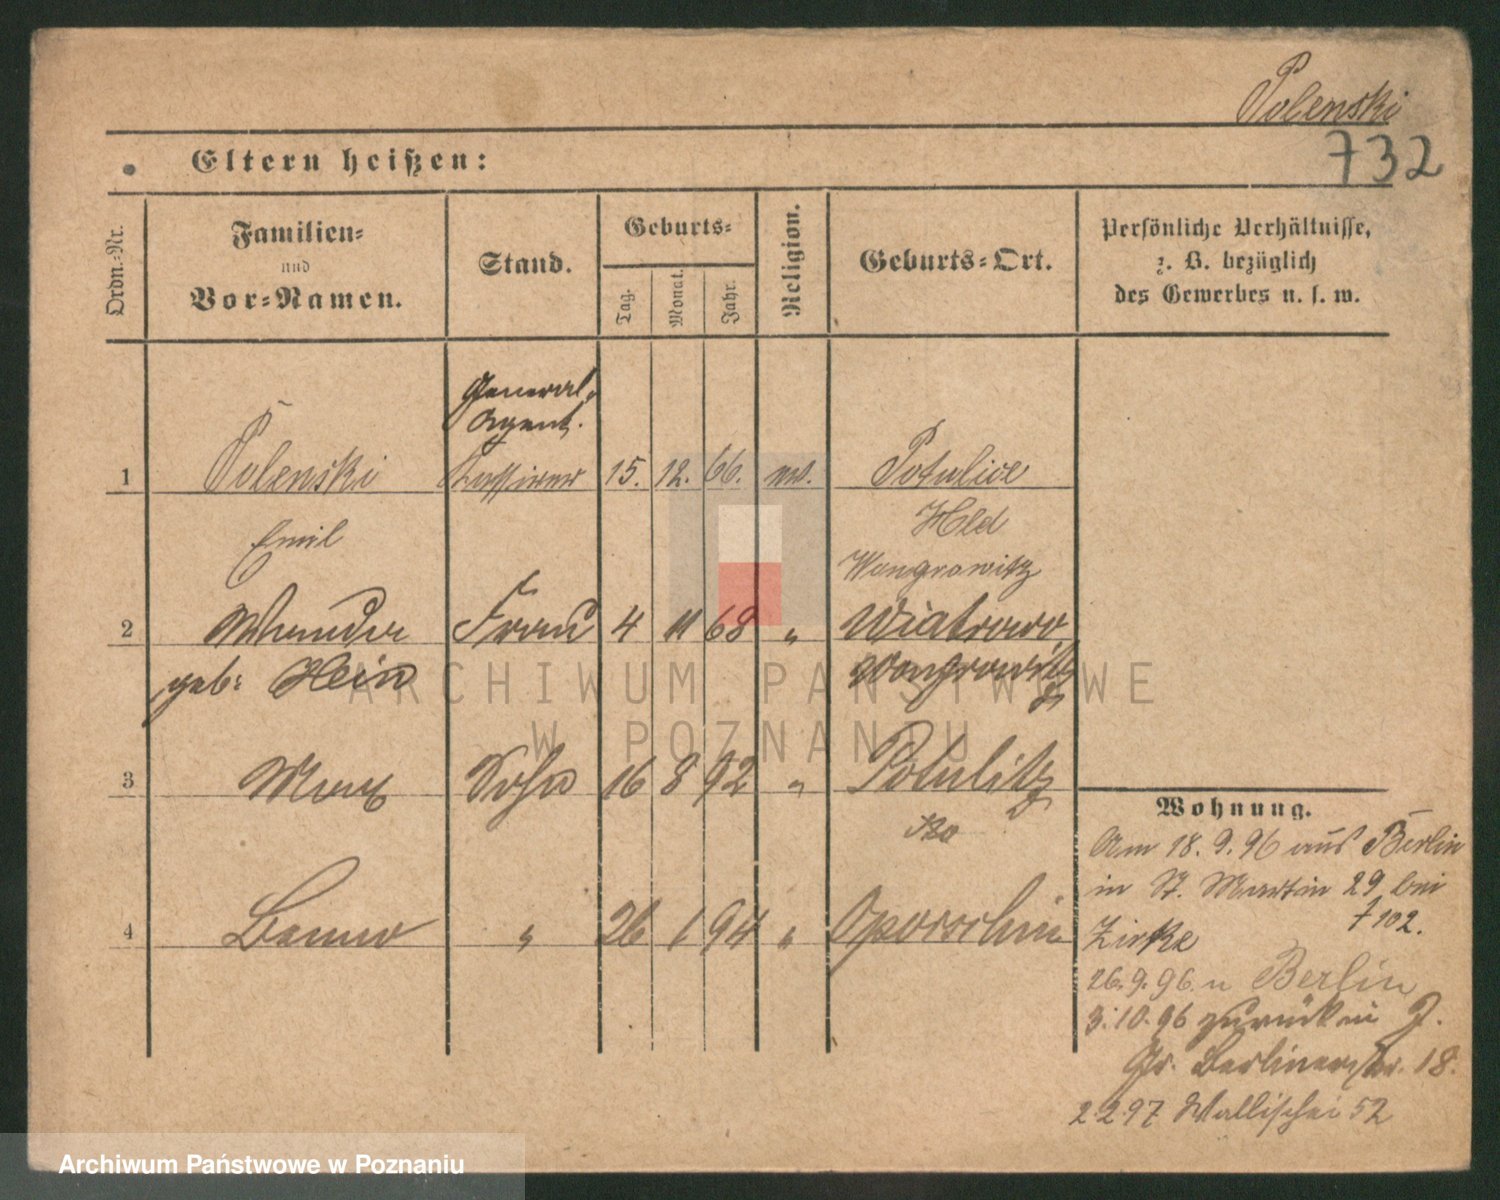 Polenski
732
Eltern heißen:
Ordn.-Nr.
Familien-
und
Vor-Namen.
Stand.
Geburts-
Tag.
Monat.
Jahr.
Religion.
Geburts-Ort.
Persönliche Verhältnisse,
z. B. bezüglich
des Gewerbes u. s. w.
General-
Agent.
1 Polenski Kassirer 15. 12. 66. ev. Potulice
Emil Hld
Wongrowitz
2 Frau 4 11 68 " Wiatrowo
geb: Hein Wongrowitz
3 Max Sohn 16 8 92 " Potulitz
4 Benno " 26 1 94 "
Wohnung.
Am 18. 9. 96 aus Berlin
in St. Martin 29 bei
Zirke 7102.
26. 9. 96 n Berlin
3. 10. 96 zurück in J.
Gr. Berlinerstr. 18.
2 2 97 Wallischei 52
ARCHIWUM PAŃSTWOWE
W POZNANIU
Archiwum Państwowe w Poznaniu